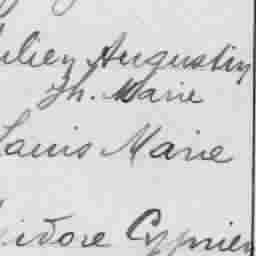 Augustin
Th. Marie
Louis Marie
Isidore Cyprien